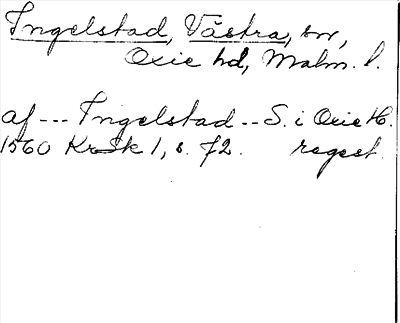 Ingelstad, Västra, sn,
Oxie hd, Malm. l.
af --- Ingelstad -- S. i Oxie H.
1560 KrSk 1, s. 72. regest.